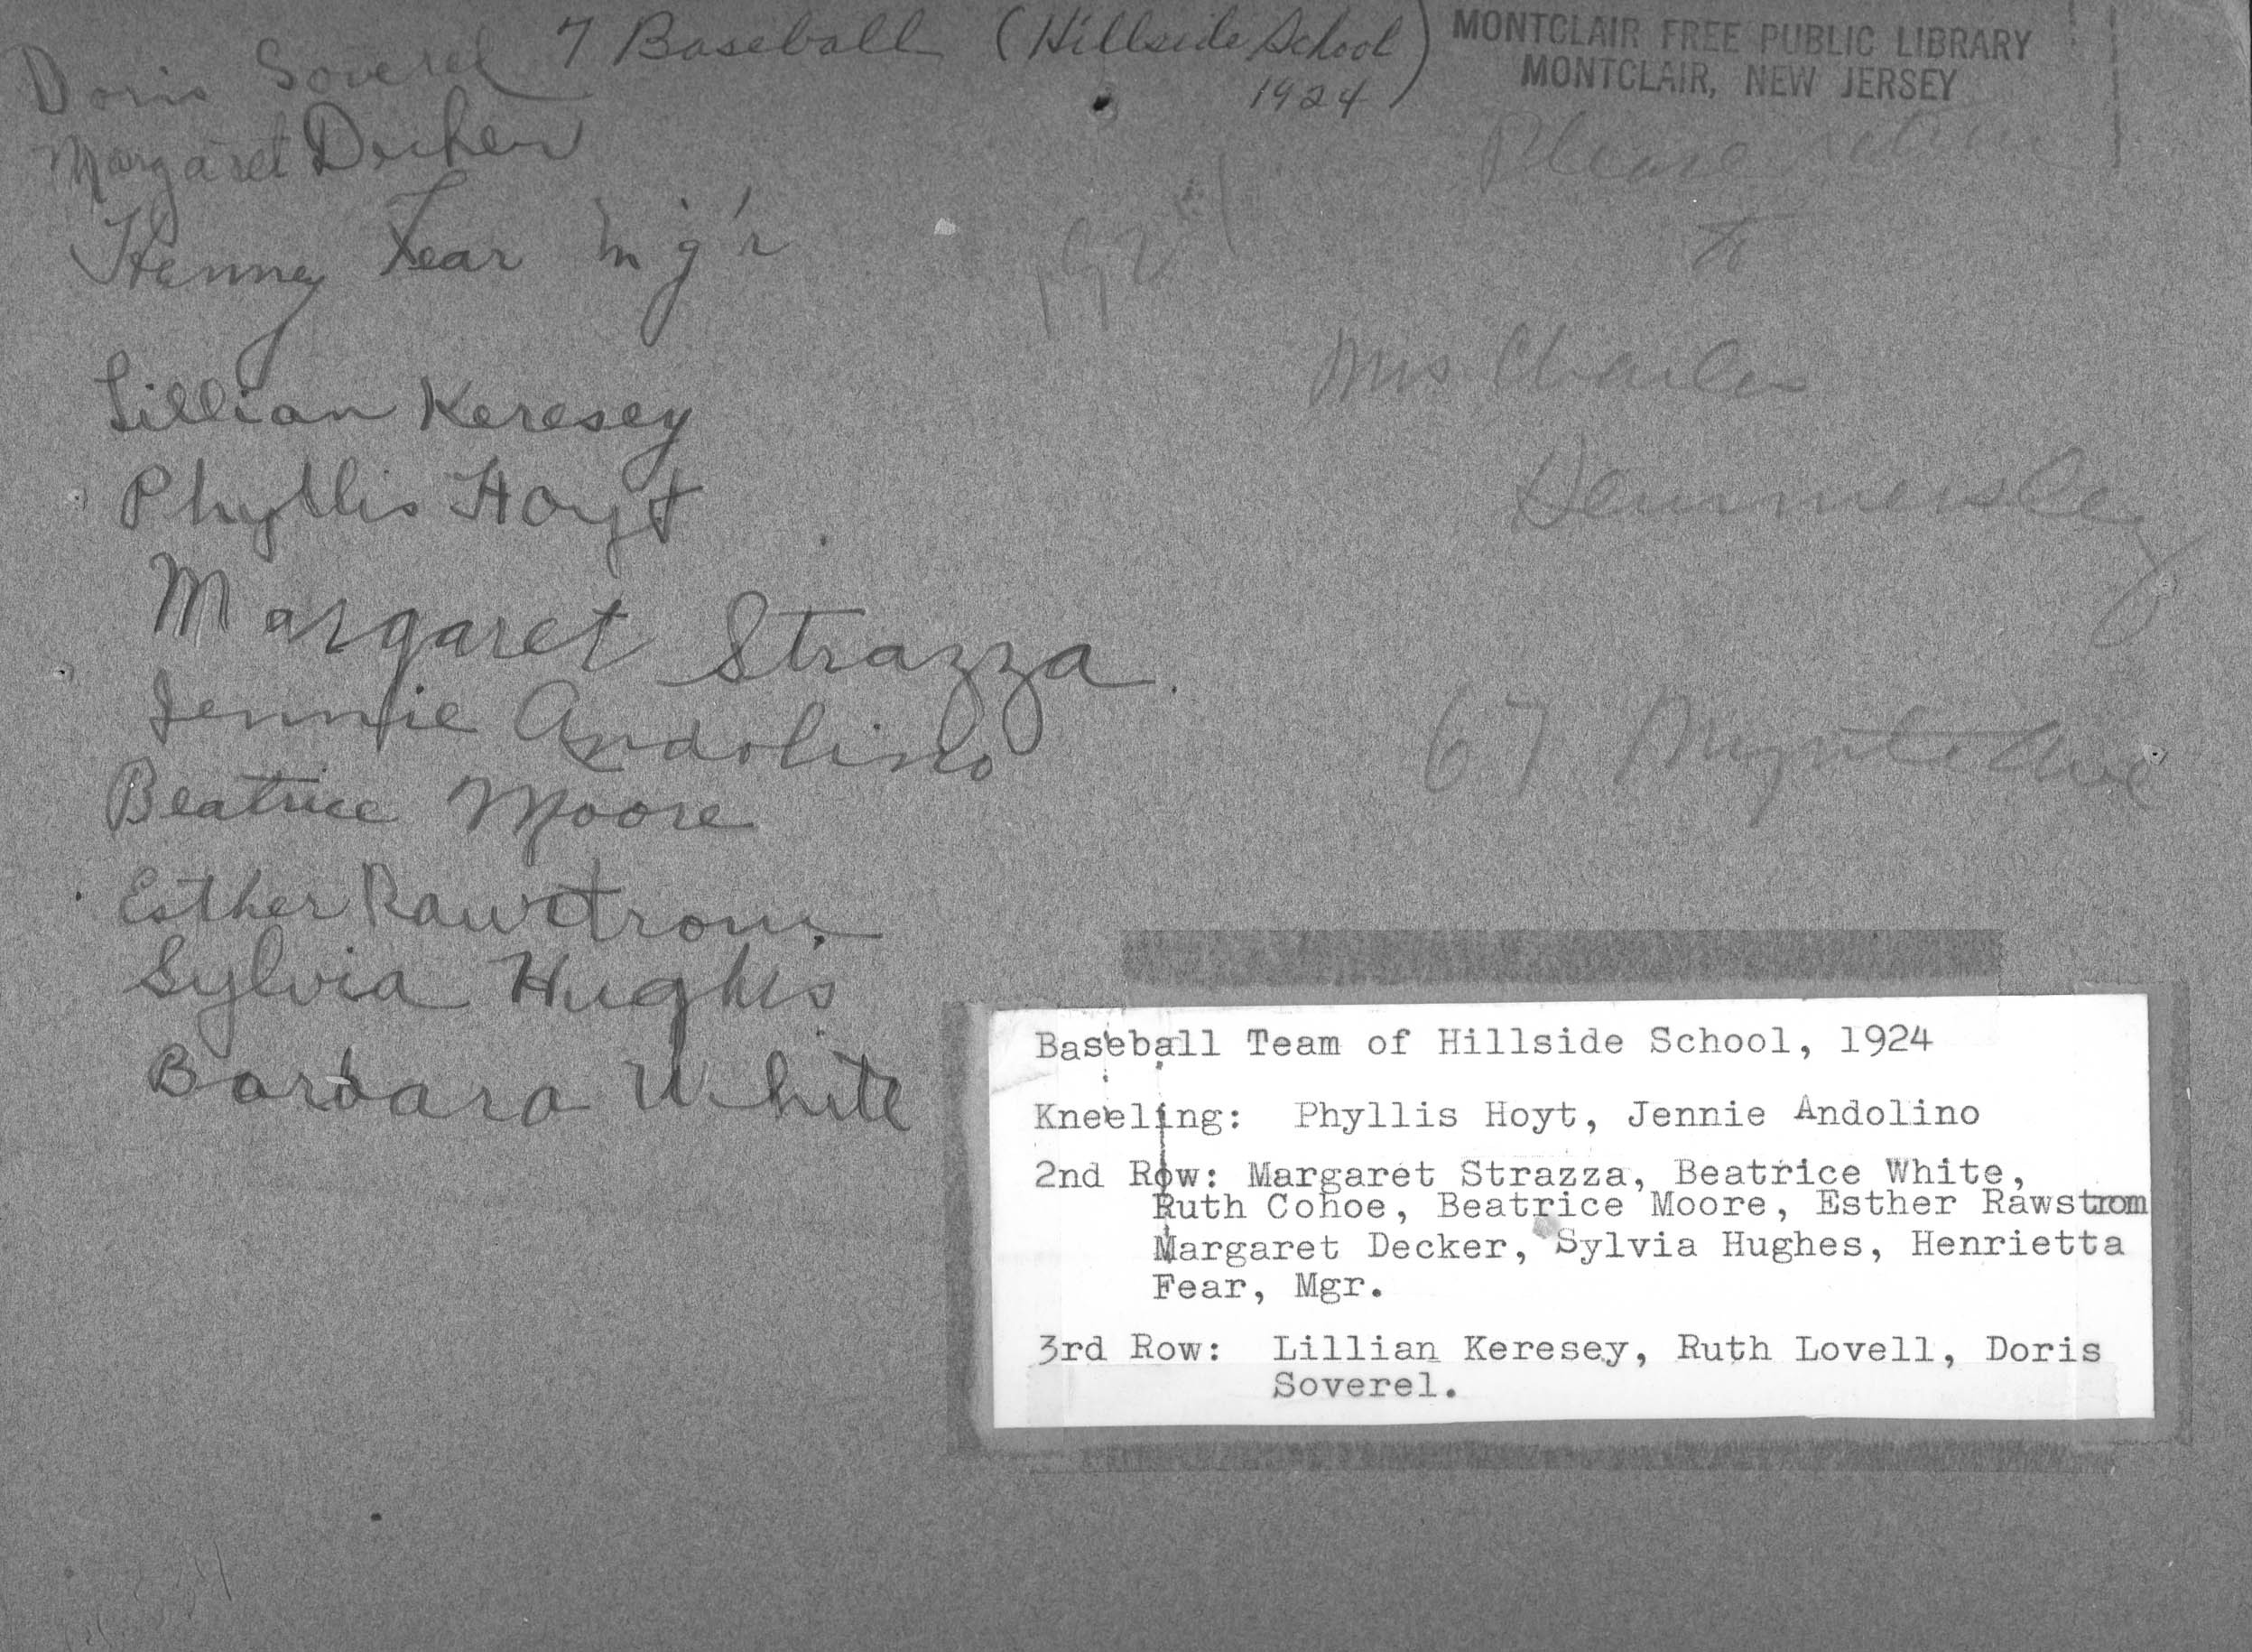 7 Baseball (Hillside School)
1924
MONTCLAIR FREE PUBLIC LIBRARY
MONTCLAIR, NEW JERSEY
Doris Soverel
Margaret Decker
Henny Fear m'g'r
Lillian Keresey
Phyllis Hoyt
Margaret Strazza
Jennie Andolino
Beatrice Moore
Esther Rawstrom
Sylvia Hughes
Barbara White
Please return
to
Mrs Charles
67 Myrtle Ave
Baseball Team of Hillside School, 1924
Kneeling: Phyllis Hoyt, Jennie Andolino
2nd Row: Margaret Strazza, Beatrice White,
Ruth Cohoe, Beatrice Moore, Esther Rawstrom
Margaret Decker, Sylvia Hughes, Henrietta
Fear, Mgr.
3rd Row: Lillian Keresey, Ruth Lovell, Doris
Soverel.